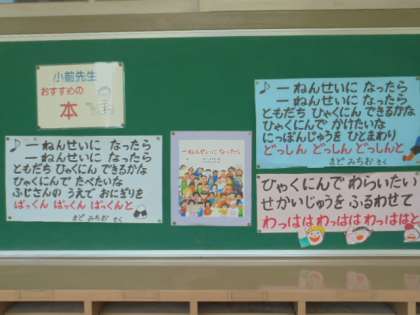 小前先生
おすすめの
本
♪ 一ねんせいに なったら
一ねんせいに なったら
ともだち ひゃくにん できるかな
ひゃくにんで たべたいな
ふじさんの うえで おにぎりを
ぱっくん ぱっくん ぱっくんと
まど みちお さく
一ねんせいに なったら
♪ 一ねんせいに なったら
一ねんせいに なったら
ともだち ひゃくにん できるかな
ひゃくにんで かけたいな
にっぽんじゅうを ひとまわり
どっしん どっしん どっしんと
ひゃくにんで わらいたい
せかいじゅうを ふるわせて
わっはは わっはは わっははと